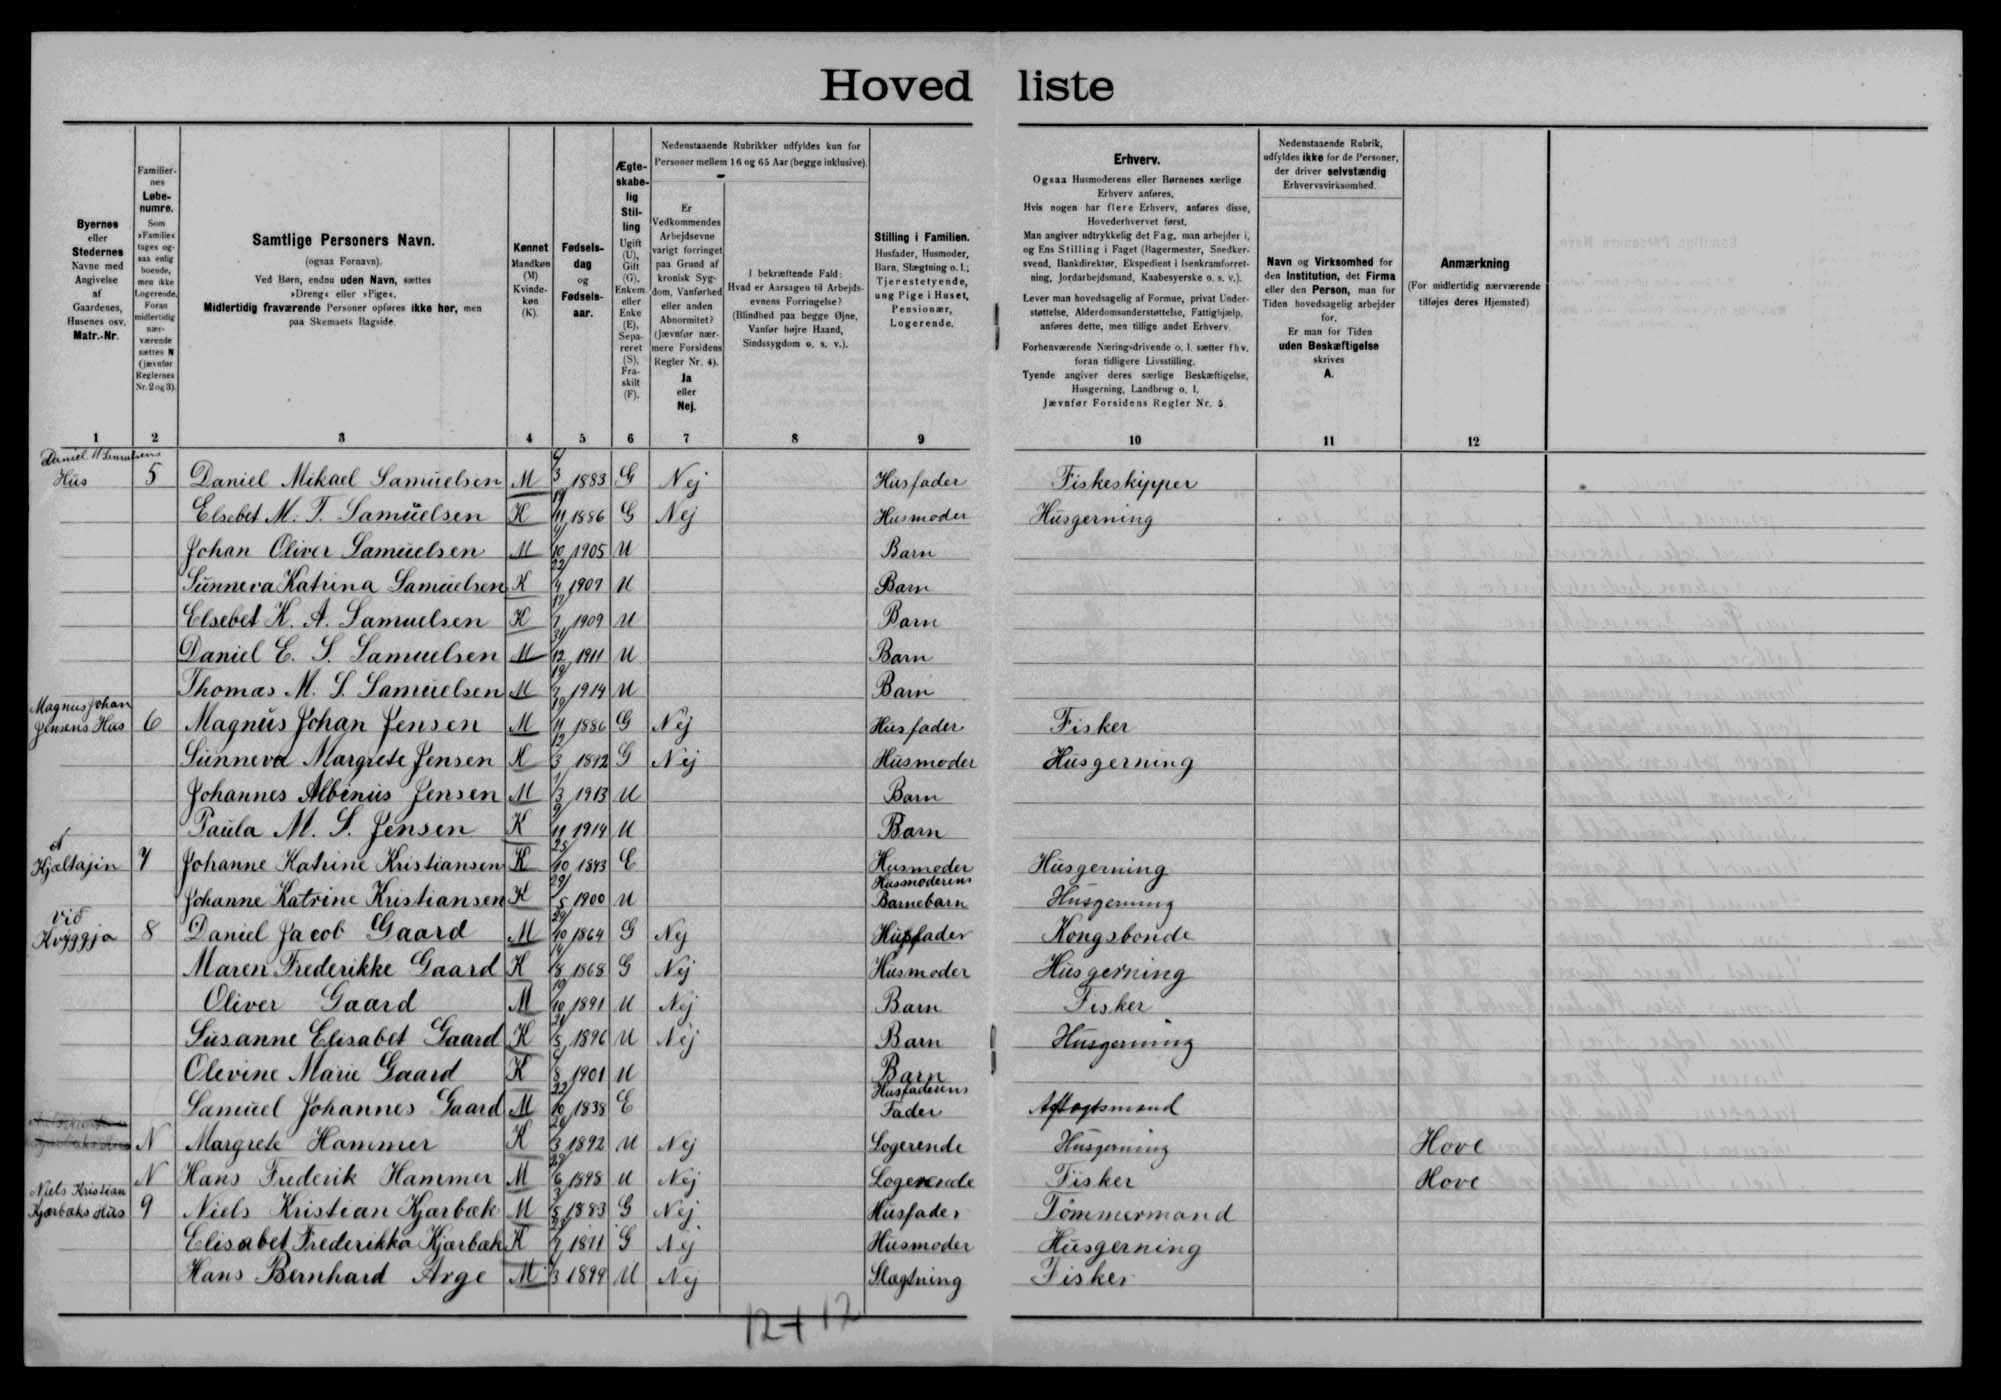 Hovedliste
Byernes
eller
Stedernes
Navne med
Angivelse
af
Gaardenes,
Husenes osv.
Matr.-Nr.
Familier-
nes
Løbe-
numre.
Som
»Familie«
tages og-
saa enlig
boende,
men ikke
Logerende.
Foran
midlertidig
nær-
værende
sættes N
(jævnfør
Reglernes
Nr. 2 og 3).
Samtlige Personers Navn.
(ogsaa Fornavn).
Ved Børn, endnu uden Navn, sættes
»Dreng« eller »Pige«.
Midlertidig fraværende Personer opføres ikke her, men
paa Skemaets Bagside.
Kønnet
Mandkøn
(M)
Kvinde-
køn
(K).
Fødsels-
dag
og
Fødsels-
aar.
Ægte-
skabe-
lig
Stil-
ling
Ugift
(U),
Gift
(G),
Enkem.
eller
Enke
(E),
Sepa-
reret
(S),
Fra-
skilt
(F).
Nedenstaaende Rubrikker udfyldes kun for
Personer mellem 16 og 65 Aar (begge inklusive).
Er
Vedkommendes
Arbejdsevne
varigt forringet
paa Grund af
kronisk Syg-
dom, Vanførhed
eller anden
Abnormitet?
(Jævnfør nær-
mere Forsidens
Regler Nr. 4).
Ja
eller
Nej.
I bekræftende Fald:
Hvad er Aarsagen til Arbejds-
evnens Forringelse?
(Blindhed paa begge Øjne,
Vanfør højre Haand,
Sindssygdom o. s. v.).
Stilling i Familien.
Husfader, Husmoder,
Barn, Slægtning o. l.;
Tjenestetyende,
ung Pige i Huset,
Pensionær,
Logerende.
Erhverv.
Ogsaa Husmoderens eller Børnenes særlige
Erhverv anføres.
Hvis nogen har flere Erhverv, anføres disse,
Hovederhvervet først.
Man angiver udtrykkelig det Fag, man arbejder i,
og Ens Stilling i Faget (Bagermester, Snedker-
svend, Bankdirektør, Ekspedient i Isenkramforret-
ning, Jordarbejdsmand, Kaabesyerske o. s. v.).
Lever man hovedsagelig af Formue, privat Under-
støttelse, Alderdomsunderstøttelse, Fattighjælp,
anføres dette, men tillige andet Erhverv.
Forhenværende Næringsdrivende o. l. sætter fhv.
foran tidligere Livsstilling.
Tyende angiver deres særlige Beskæftigelse,
Husgerning, Landbrug o. l.
Jævnfør Forsidens Regler Nr. 5.
Nedenstaaende Rubrik,
udfyldes ikke for de Personer,
der driver selvstændig
Erhvervsvirksomhed.
Navn og Virksomhed for
den Institution, det Firma
eller den Person, man for
Tiden hovedsagelig arbejder
for.
Er man for Tiden
uden Beskæftigelse
skrives
A.
Anmærkning
(For midlertidig nærværende
tilføjes deres Hjemsted)
1 2 3 4 5 6 7 8 9 10 11 12
Daniel M Samuelsens
Hus 5 Daniel Mikael Samuelsen M 4/3 1883 G Nej Husfader Fiskeskipper
Elsebet M. T. Samuelsen K 19/11 1886 G Nej Husmoder Husgerning
Johan Oliver Samuelsen M 10 1905 U Barn
Sunneva Katrina Samuelsen K 22/4 1907 U Barn
Elsebet K. A. Samuelsen K 17/7 1909 U Barn
Daniel E. S. Samuelsen M 31/12 1911 U Barn
Thomas M. S. Samuelsen M 19/3 1914 U Barn
Magnus Johan
Jensens Hus 6 Magnus Johan Jensen M 19/11 1886 G Nej Husfader Fisker
Sunneva Margrete Jensen K 12/3 1892 G Nej Husmoder Husgerning
Johannes Albinus Jensen M 1/3 1913 U Barn
Paula M. S. Jensen K 9/11 1914 U Barn
á
Kjaltajin 7 Johanne Katrine Kristiansen K 25/10 1843 E Husmoder Husgerning
Johanne Katrine Kristiansen K 29/5 1900 U Husmoderens Barnebarn Husgerning
við
Kvyggja 8 Daniel Jacob Gaard M 29/10 1864 G Nej Husfader Kongsbonde
Maren Frederikke Gaard K 14/8 1868 G Nej Husmoder Husgerning
Oliver Gaard M 19/10 1891 U Nej Barn Fisker
Susanne Elisabet Gaard K 21/5 1896 U Nej Barn Husgerning
Olevine Marie Gaard K 4/8 1901 U Barn
Samuel Johannes Gaard M 22/10 1838 E Husfaderens Fader Aftagtsmand
N Margrete Hammer K 26/3 1892 U Nej Logerende Husgerning Hove
N Hans Frederik Hammer M 28/6 1898 U Nej Logerende Fisker Hove
Niels Kristian
Kjærbæks Hus 9 Niels Kristian Kjærbæk M 3/5 1883 G Nej Husfader Tømmermand
Elisabet Frederikka Kjærbæk K 7 1871 G Nej Husmoder Husgerning
Hans Bernhard Arge M 3 1899 U Nej Slægtning Fisker
12+12